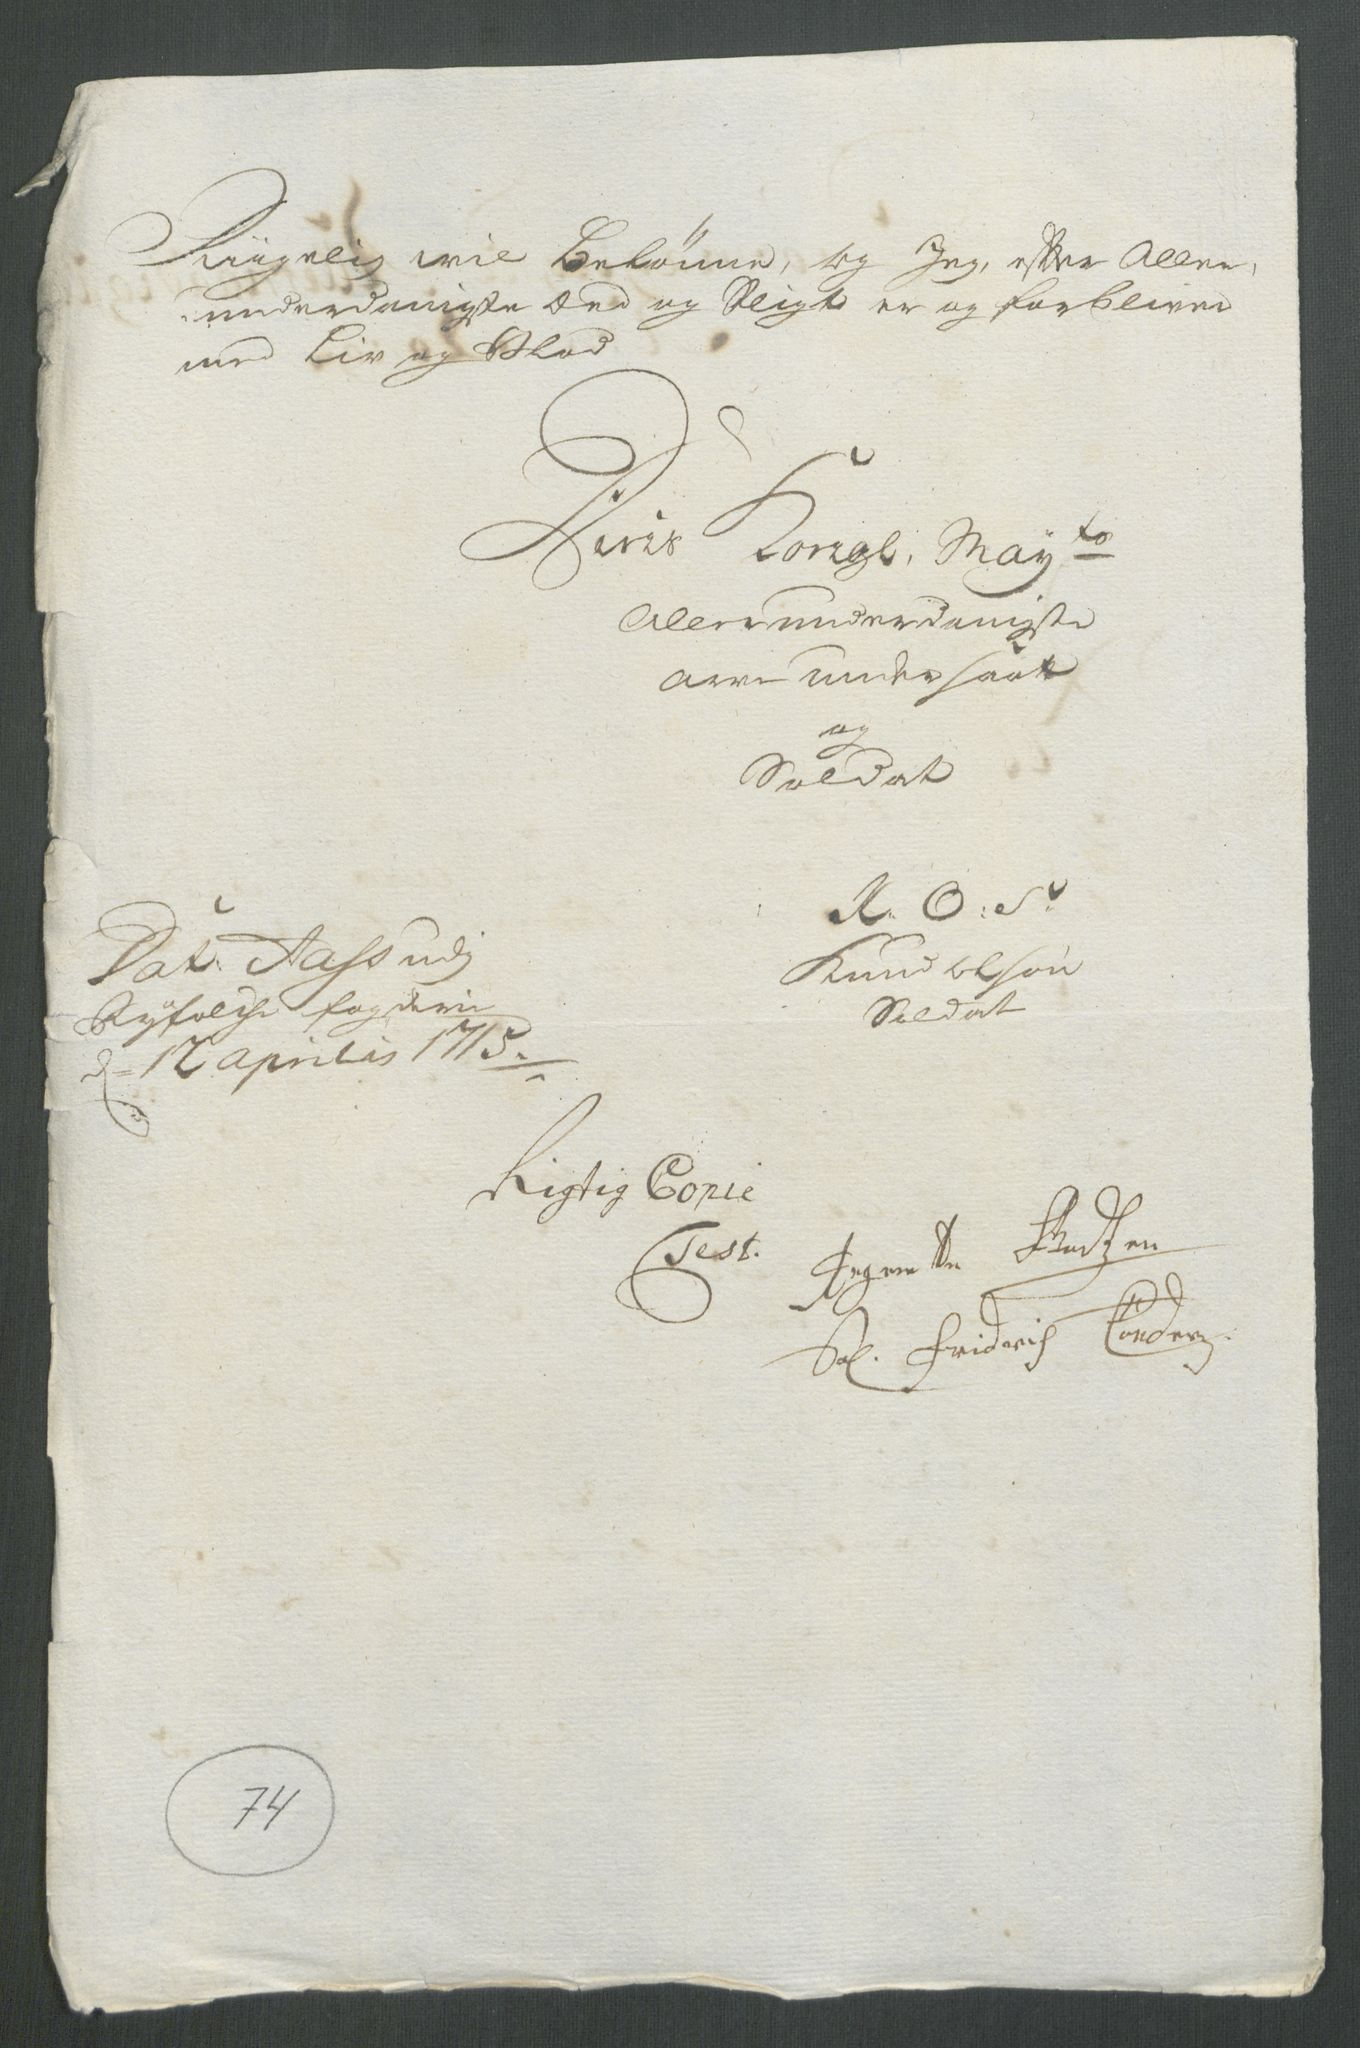 Riigelig wil Belønne, og Jeg, efter Aller,
underdanigste Eed og Pligt er og forbliver
med Liv og Blod
Deris Kongl. May^ts
Allerunderdanigste
arve undersaat
og
Soldat
K. O: S:
Knud olsøn
Soldat
Dat: Aass udj
Ryfølche fogderie
d= 12 aprilis 1715.
Rigtig Copie
Test.
Sal. Fridrich
74